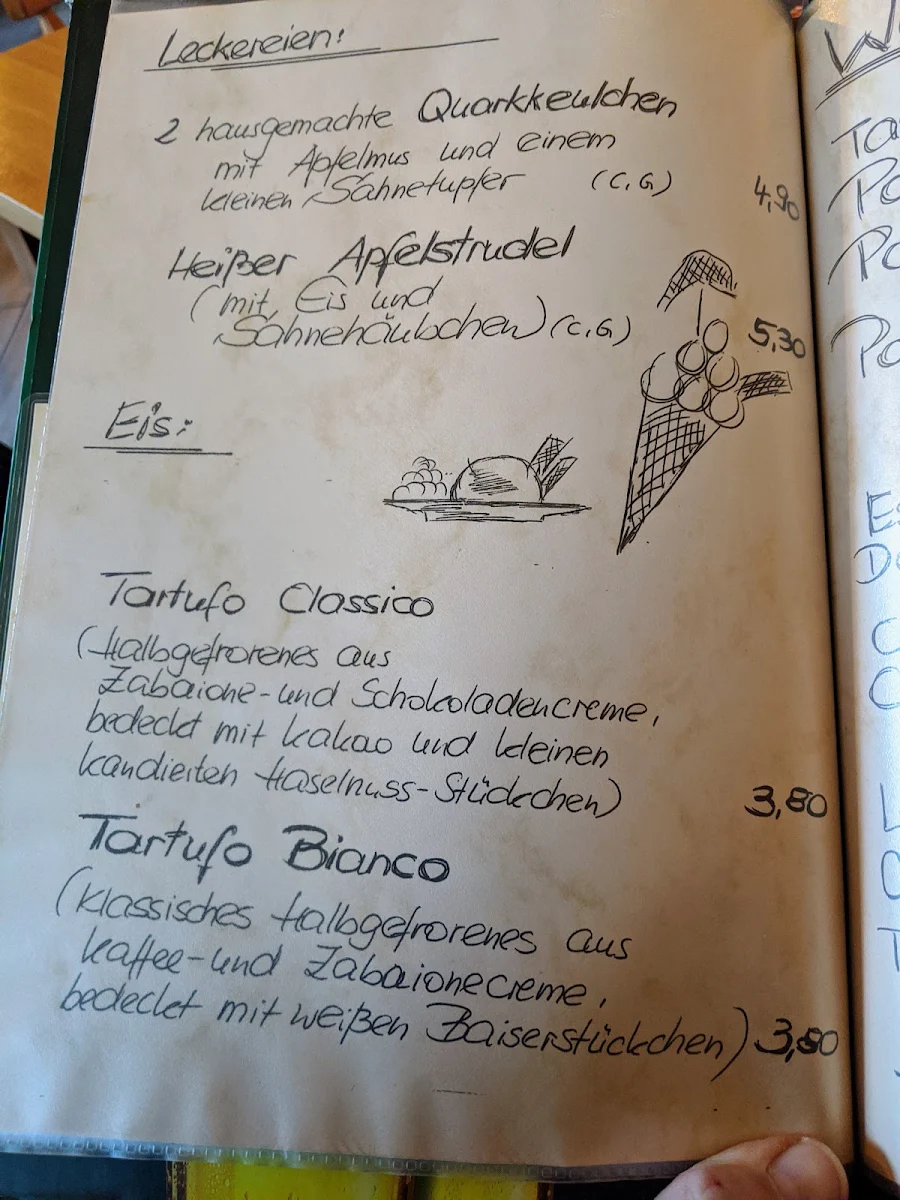 Leckereien:
2 hausgemachte Quarkkeulchen
mit Apfelmus und einem
kleinen Sahnetupfer (C,G)
4,90
Heißer Apfelstrudel
(mit Eis und
Sahnehäubchen) (C,G)
5,30
Eis:
Tartufo Classico
(Halbgefrorenes aus
Zabaione- und Schokoladencreme,
bedeckt mit Kakao und kleinen
kandierten Haselnuss-Stückchen)
3,80
Tartufo Bianco
(Klassisches Halbgefrorenes aus
Kaffee- und Zabaionecreme,
bedeckt mit weißen Baiserstückchen) 3,80